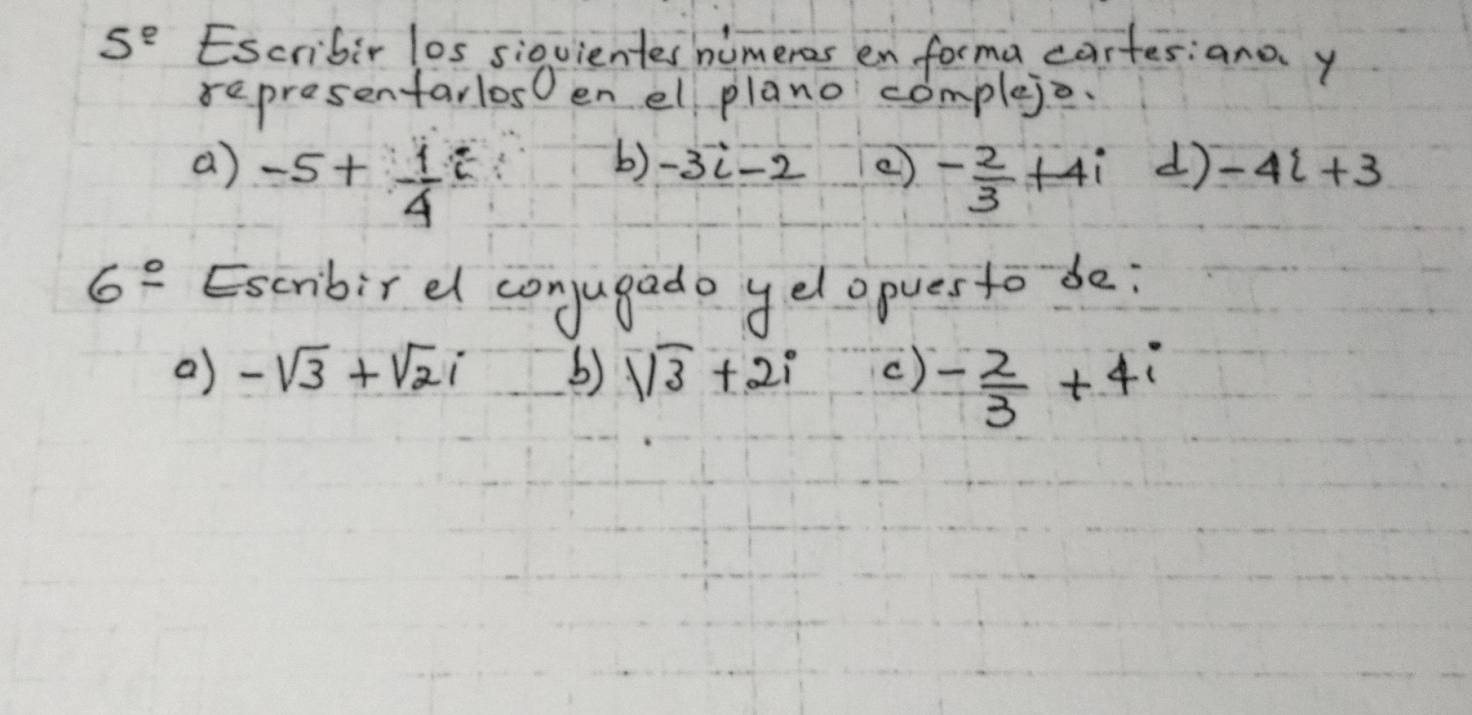 5º Escribir los siguientes números en forma cartesiana y
representarlos en el plano complejo.
a) -5 + 1/4 i b) -3i-2 c) -2/3 +4i d) -4i+3
6º Escribir el conjugado y el opuesto de:
a) -√3 + √2 i b) √3 +2i c) -2/3 + 4i